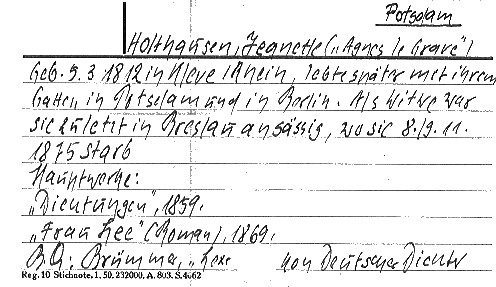 Potsdam
Holthausen, Jeanette („Agnes le Grave")
Geb. 5.3 1812 in Kleve Rhein, lebte später mit ihrem
Gatten in Potsdam und in Berlin. Als Witwe war
sie zuletzt in Breslau ansässig, wo sie 8./9. 11.
1875 starb
Hauptwerke:
„Dichtungen", 1859.
„Frau Lee" (Roman), 1869.
B.Q: Brümma, „Lexe kon Deutscher Dichter
Reg. 10 Stichnote. 1. 50. 232000. A. 803. S. 4662